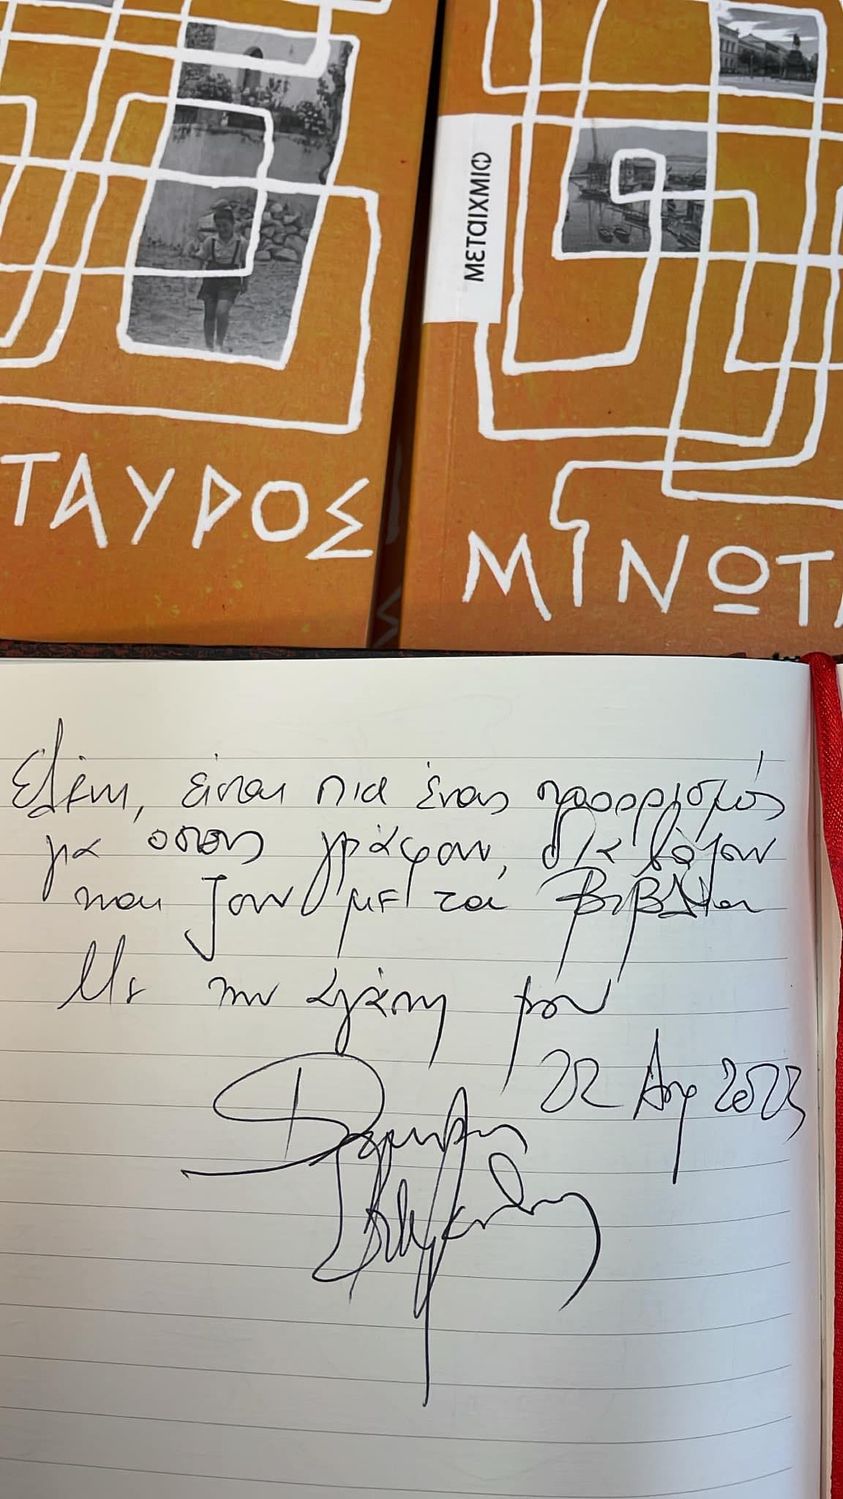 ΤΑΥΡΟΣ
ΜΕΤΑΙΧΜΙΟ
ΜΙΝΩΤΑ
Ελένη, είναι πια ένας προορισμός
για όσους γράφουν, διαβάζουν
και ζουν με τα βιβλία
Με την αγάπη μου
22 Αυγ 2023